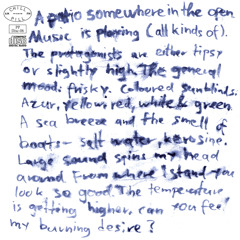 CHILL
PILL
A patio somewhere in the open
Music is playing (all kinds of).
The protagonists are either tipsy
or slightly high. The general
mood: frisky. Coloured sunblinds.
Azur, yellow red, white & green
A sea breeze and the smell of
boats – salt water, kerosine.
Large sound spins my head
around From where I stand you
look so good. The temperature
is getting higher, can you feel
my burning desire?